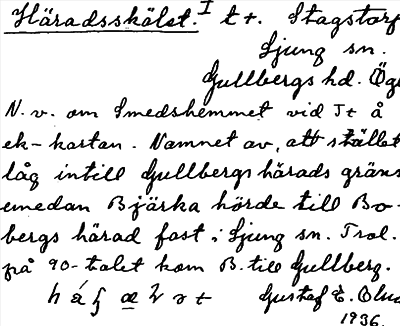 Häradsskälet. I t +. Stagstorp
Ljung sn.
Gullbergs hd. Ög
N. v. om Smedshemmet vid It å
ek-kartan. Namnet av, att stället
låg intill Gullbergs härads gräns
emedan Bjärka hörde till Bo-
bergs härad fast i Ljung sn. Trol.
på 90-talet kom B. till Gullberg.
Gustaf E.
1936.